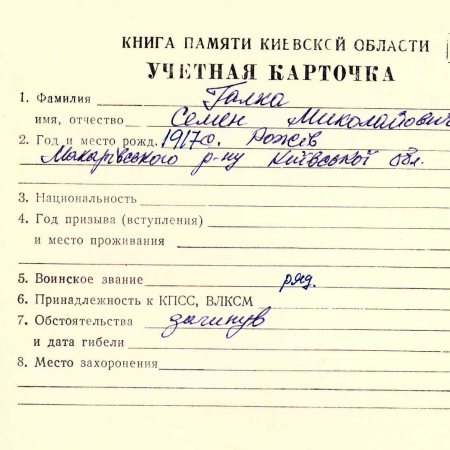 КНИГА ПАМЯТИ КИЕВСКОЙ ОБЛАСТИ
УЧЕТНАЯ КАРТОЧКА
1. Фамилия Галка
имя, отчество Семен Миколайович
2. Год и место рожд. 1917р. Рожів
Макарівського р-ну Київської обл.
3. Национальность
4. Год призыва (вступления)
и место проживания
5. Воинское звание ряд.
6. Принадлежность к КПСС, ВЛКСМ
7. Обстоятельства загинув
и дата гибели
8. Место захоронения